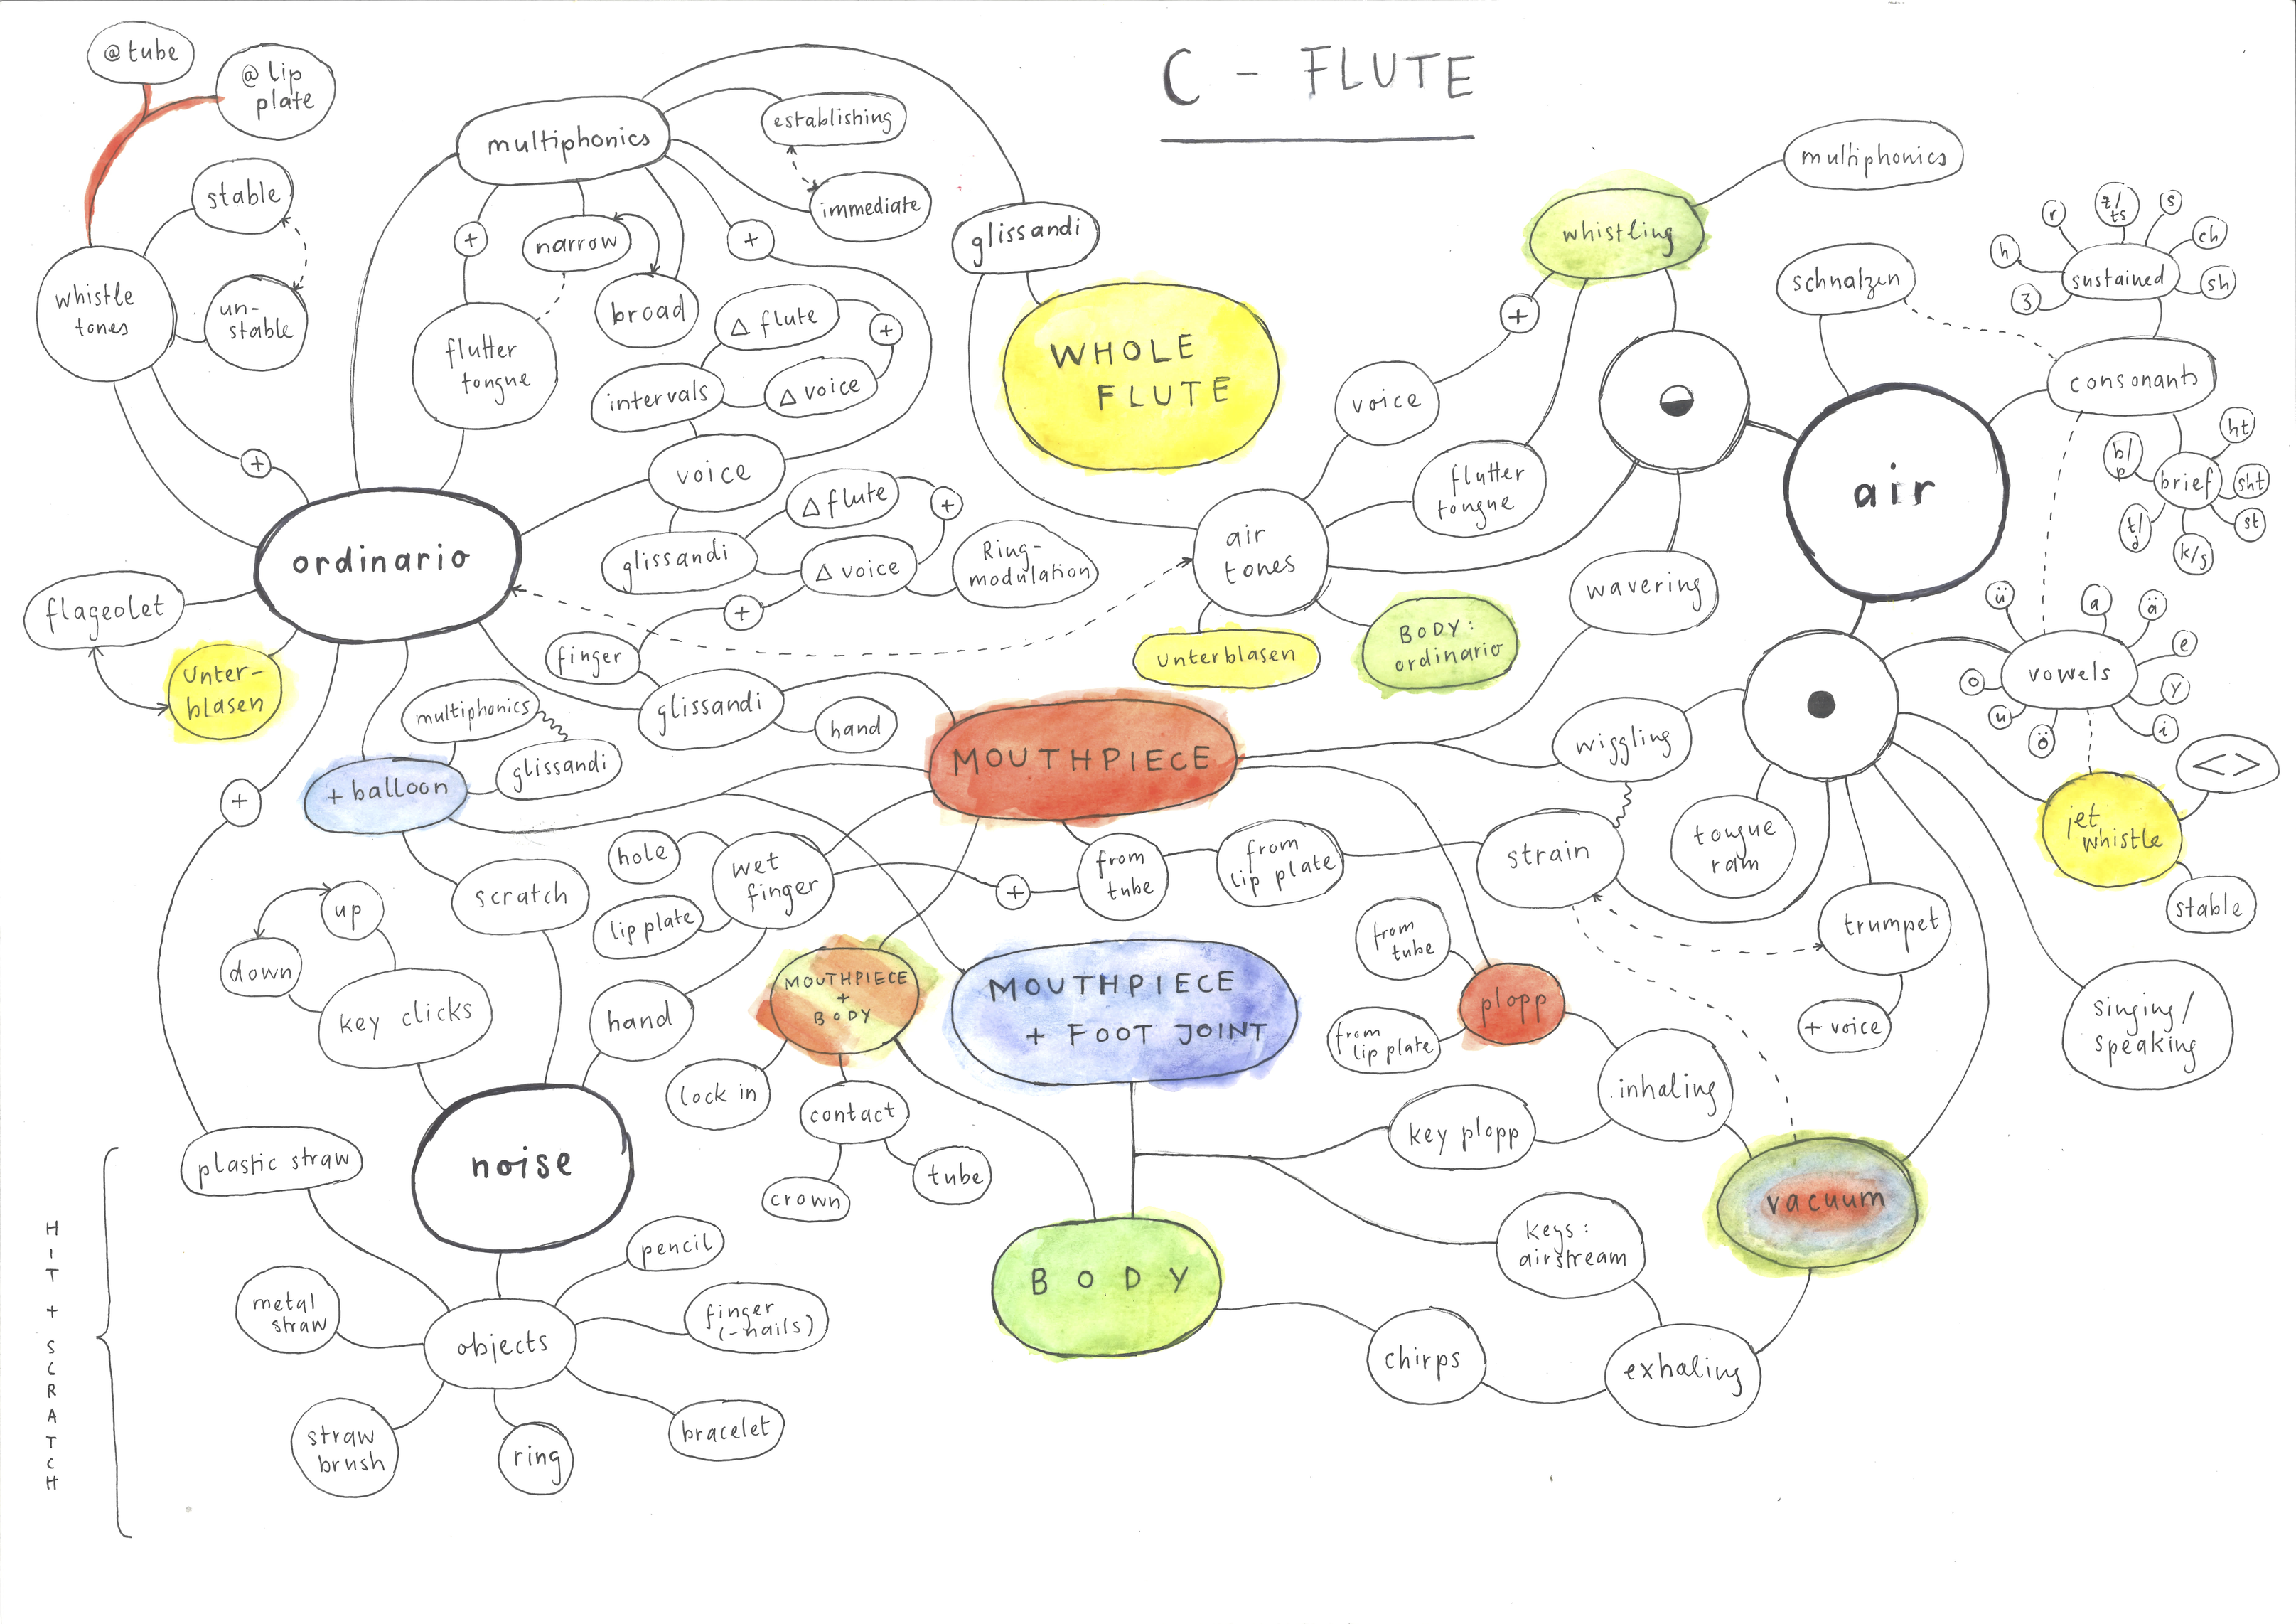 C - FLUTE
@ tube
@ lip
plate
stable
un-
stable
whistle
tones
+
multiphonics
establishing
immediate
+
narrow
broad
+
flutter
tongue
Δ flute
+
Δ voice
intervals
voice
glissandi
Δ flute
+
Δ voice
Ring-
modulation
+
finger
glissandi
hand
ordinario
flageolet
Unter-
blasen
+
+ balloon
multiphonics
glissandi
scratch
glissandi
WHOLE
FLUTE
whistling
multiphonics
+
voice
flutter
tongue
air
tones
unterblasen
BODY:
ordinario
wavering
air
schnalzen
consonants
sustained
ʒ
h
r
z/
ts
s
ch
sh
brief
b/
p
t/
d
k/s
st
sht
ht
vowels
ü
a
ä
e
y
i
ö
u
o
jet
whistle
< >
stable
wiggling
strain
tongue
ram
trumpet
+ voice
singing/
speaking
MOUTHPIECE
hole
wet
finger
lip plate
hand
+
from
tube
from
lip plate
MOUTHPIECE
+
BODY
lock in
contact
crown
tube
MOUTHPIECE
+ FOOT JOINT
from
tube
from
lip plate
plopp
inhaling
key plopp
keys:
airstream
vacuum
exhaling
chirps
BODY
up
down
key clicks
noise
plastic straw
objects
pencil
finger
(-nails)
bracelet
ring
straw
brush
metal
straw
HIT + SCRATCH